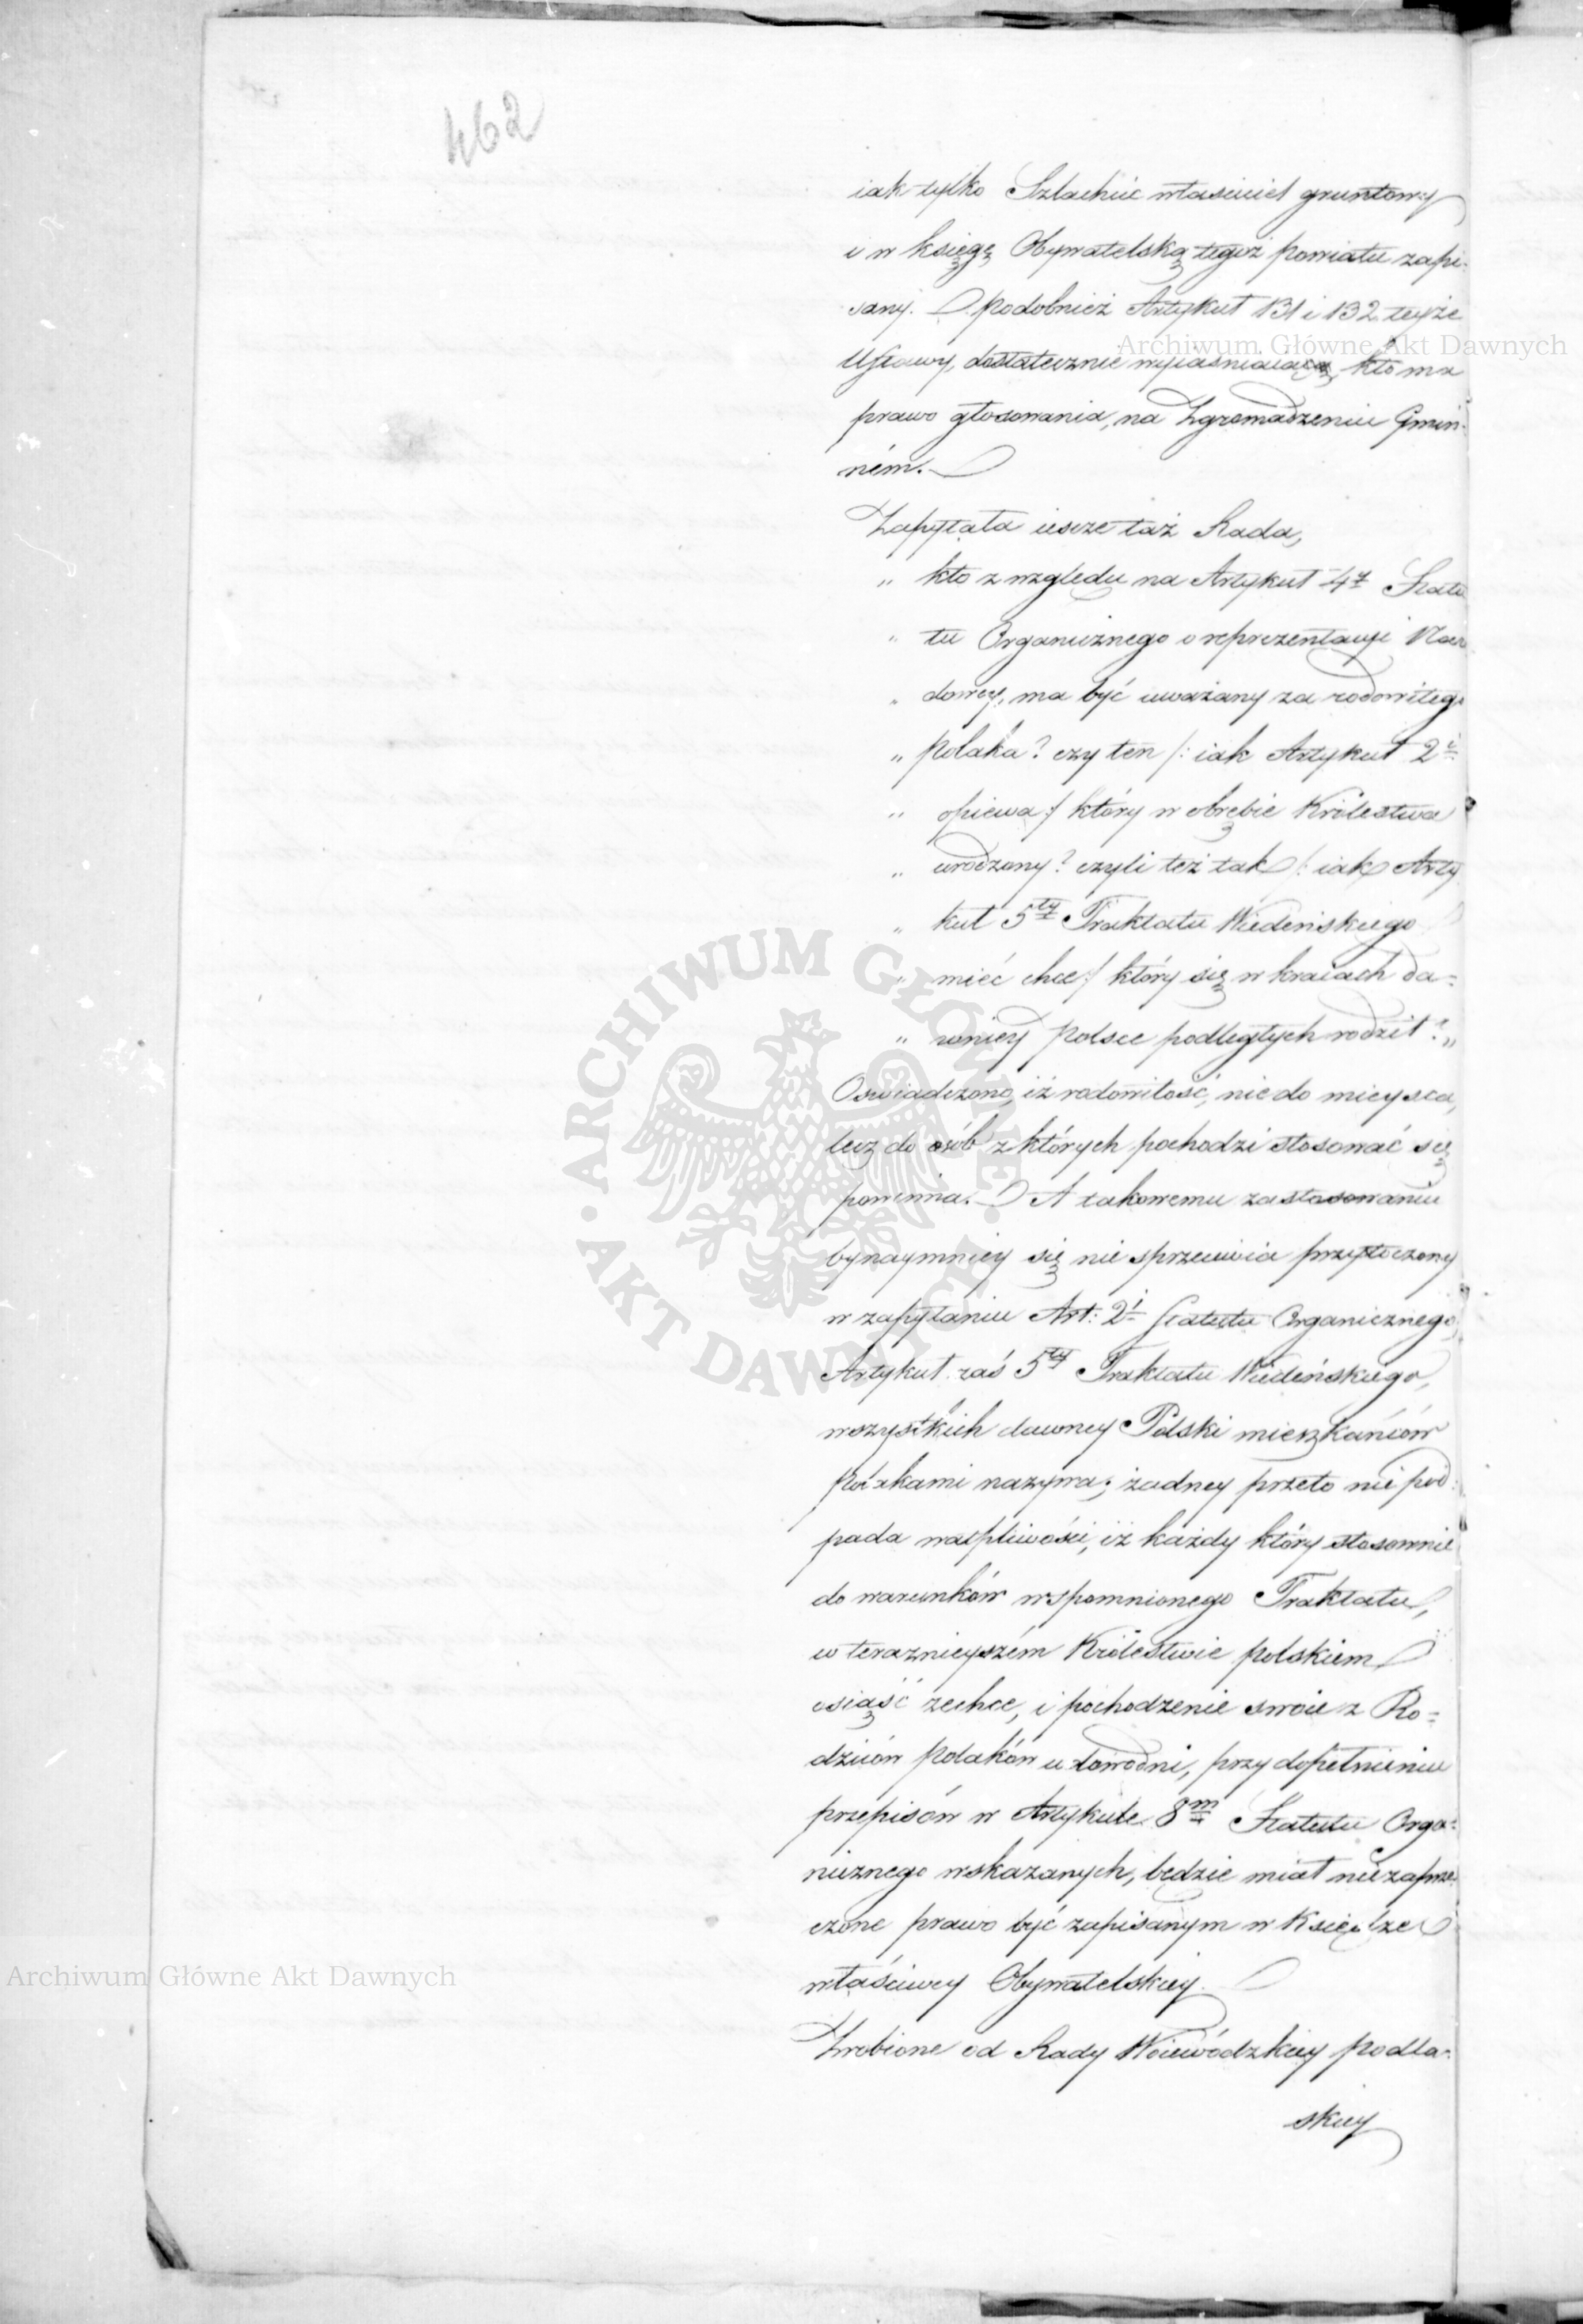 462
iak tylko Szlachcic własciciel gruntowy
i w księgę Obywatelską tegoż powiatu zapi-
sany. Podobnież Artykuł 131 i 132 teyże
Ustawy, dostatecznie wyiaśniaią, kto ma
prawo głosowania, na Zgromadzeniu Gmin-
ném.
Zapytała ieszcze taż Rada,
„ kto z względu na Artykuł 4y Statu
„ tu Organicznego o reprezentacyi Naro
„ dowey, ma być uważany za rodowitego
„ Polaka? czy ten /: iak Artykuł 2i
„ opiewa :/ który w obrębie Królestwa
„ urodzony? czyli też tak /: iak Arty
„ kuł 5ty Traktatu Wiedeńskiego
„ mieć chce :/ który się w kraiach da=
„ wniey Polsce podległych rodził? „
Oswiadczono, iż rodowitość, nie do mieysca,
lecz do osób z których pochodzi stosować się
powinna. A takowemu zastosowaniu
bynaymniey się nie sprzeciwia przytoczony
w zapytaniu Art: 2i Statutu Organicznego,
Artykuł zaś 5ty Traktatu Wiedeńskiego,
wszystkich dawney Polski mieszkańców
Polakami nazywa; żadney przeto nie pod-
pada wątpliwości, iż każdy który stosownie
do warunków wspomnionego Traktatu,
w teraznieyszém Królestwie polskiem
osiąść zechce, i pochodzenie swoie z Ro=
dziców Polaków udowodni, przy dopełnieniu
przepisów w Artykule 8m Statutu Orga-
nicznego wskazanych, będzie miał niezaprze-
czone prawo być zapisanym w Księdze
właściwey Obywatelskiey.
Zrobione od Rady Woiewódzkiey Podla-
skiey
Archiwum Główne Akt Dawnych
ARCHIWUM GŁÓWNE AKT DAWNYCH
Archiwum Główne Akt Dawnych